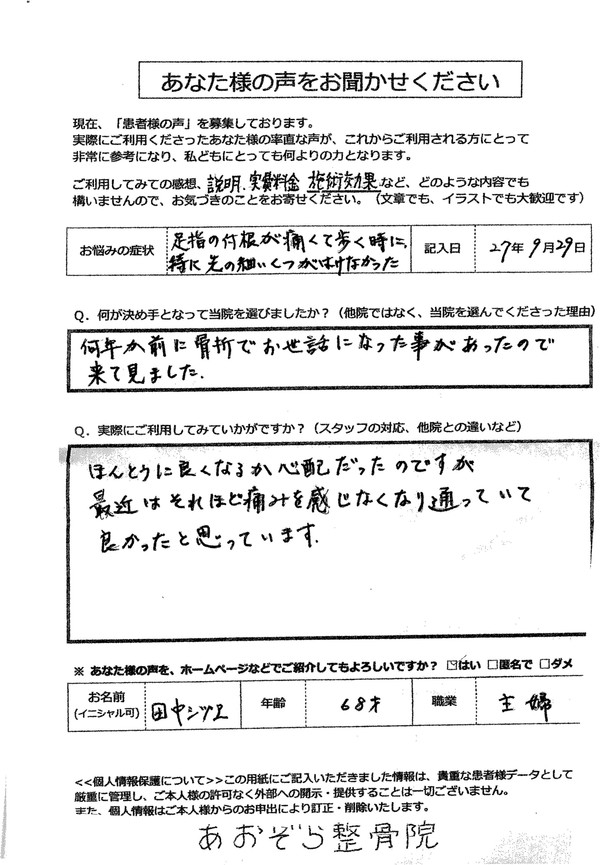 あなた様の声をお聞かせください
現在、「患者様の声」を募集しております。
実際にご利用くださったあなた様の率直な声が、これからご利用される方にとって
非常に参考になり、私どもにとっても何よりの力となります。
ご利用してみての感想、説明、実費料金 施術効果など、どのような内容でも
構いませんので、お気づきのことをお寄せください。（文章でも、イラストでも大歓迎です）
お悩みの症状
足指の付根が痛くて歩く時に、
特に先の細いくつがはけなかった
記入日
27年9月29日
Q．何が決め手となって当院を選びましたか？（他院ではなく、当院を選んでくださった理由）
何年か前に骨折でお世話になった事があったので
来て見ました．
Q．実際にご利用してみていかがですか？（スタッフの対応、他院との違いなど）
ほんとうに良くなるか心配だったのですが
最近はそれほど痛みを感じなくなり通っていて
良かったと思っています．
※ あなた様の声を、ホームページなどでご紹介してもよろしいですか？ ☑はい □匿名で □ダメ
お名前
(イニシャル可)
田中シヅエ
年齢
68才
職業
主婦
<<個人情報保護について>>この用紙にご記入いただきました情報は、貴重な患者様データとして
厳重に管理し、ご本人様の許可なく外部への開示・提供することは一切ございません。
また、個人情報はご本人様からのお申出により訂正・削除いたします。
あおぞら整骨院